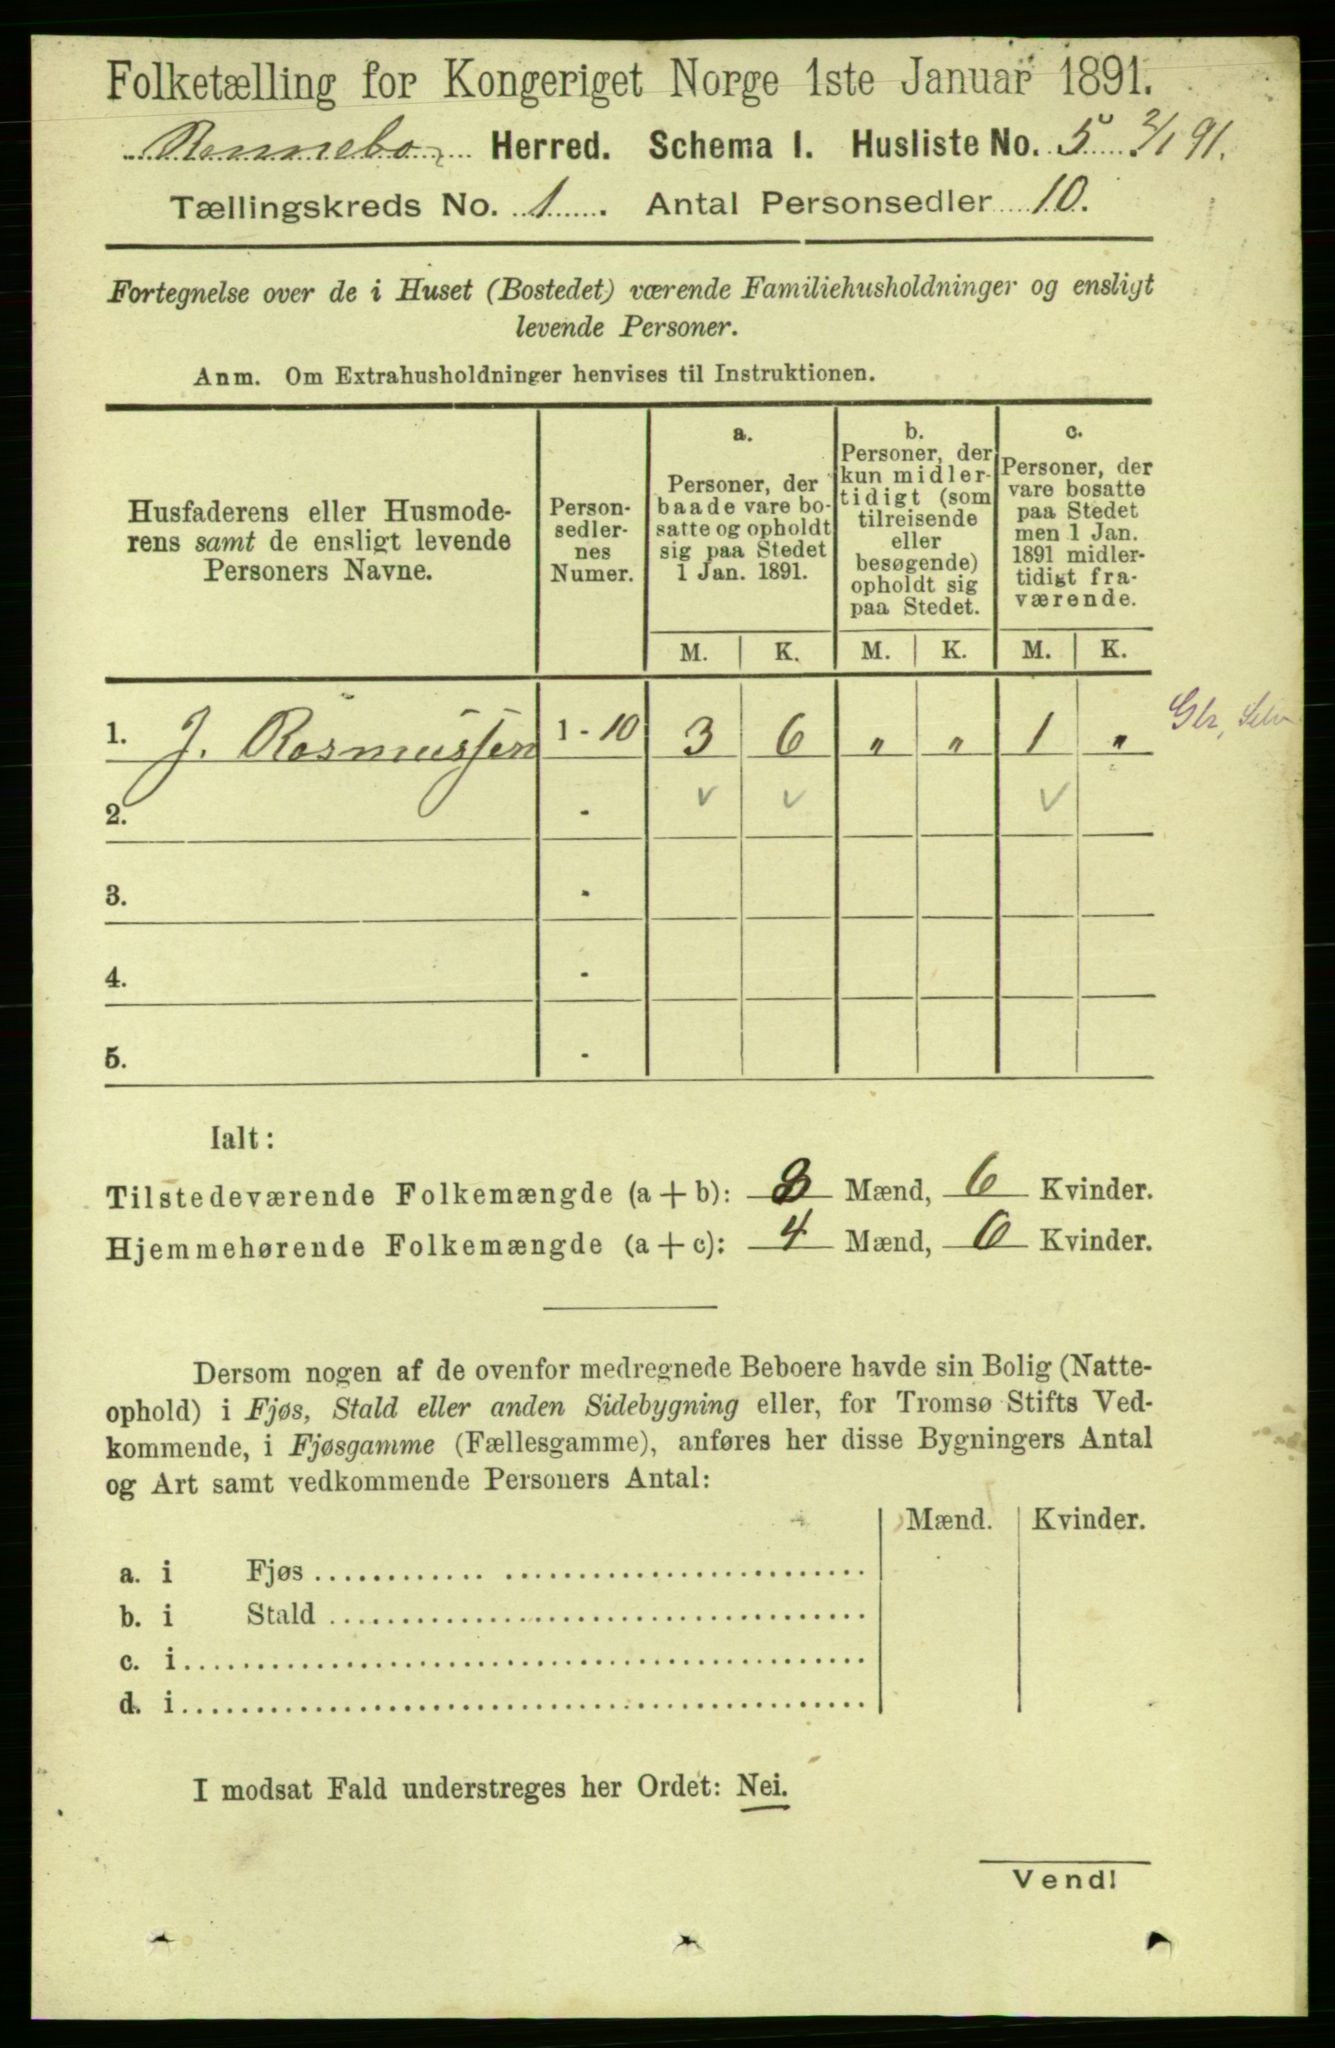 Folketælling for Kongeriget Norge 1ste Januar 1891.
Rennebo Herred. Schema 1. Husliste No. 5 2/1 91.
Tællingskreds No. 1. Antal Personsedler 10.
Fortegnelse over de i Huset (Bostedet) værende Familiehusholdninger og ensligt
levende Personer.
Anm. Om Extrahusholdninger henvises til Instruktionen.
Husfaderens eller Husmode-
rens samt de ensligt levende
Personers Navne.
Person-
sedler-
nes
Numer.
a.
Personer, der
baade vare bo-
satte og opholdt
sig paa Stedet
1 Jan. 1891.
b.
Personer, der
kun midler-
tidigt (som
tilreisende
eller
besøgende)
opholdt sig
paa Stedet.
c.
Personer, der
vare bosatte
paa Stedet
men 1 Jan.
1891 midler-
tidigt fra-
værende.
M. K. M. K. M. K.
1. J. Rasmussen 1 - 10 3 6 " " 1 "
2. - v v v
3. -
4. -
5. -
Ialt:
Tilstedeværende Folkemængde (a + b): 3 Mænd, 6 Kvinder.
Hjemmehørende Folkemængde (a + c): 4 Mænd, 6 Kvinder.
Dersom nogen af de ovenfor medregnede Beboere havde sin Bolig (Natte-
ophold) i Fjøs, Stald eller anden Sidebygning eller, for Tromsø Stifts Ved-
kommende, i Fjøsgamme (Fællesgamme), anføres her disse Bygningers Antal
og Art samt vedkommende Personers Antal:
Mænd. Kvinder.
a. i Fjøs
b. i Stald
c. i
d. i
I modsat Fald understreges her Ordet: Nei.
Vend!